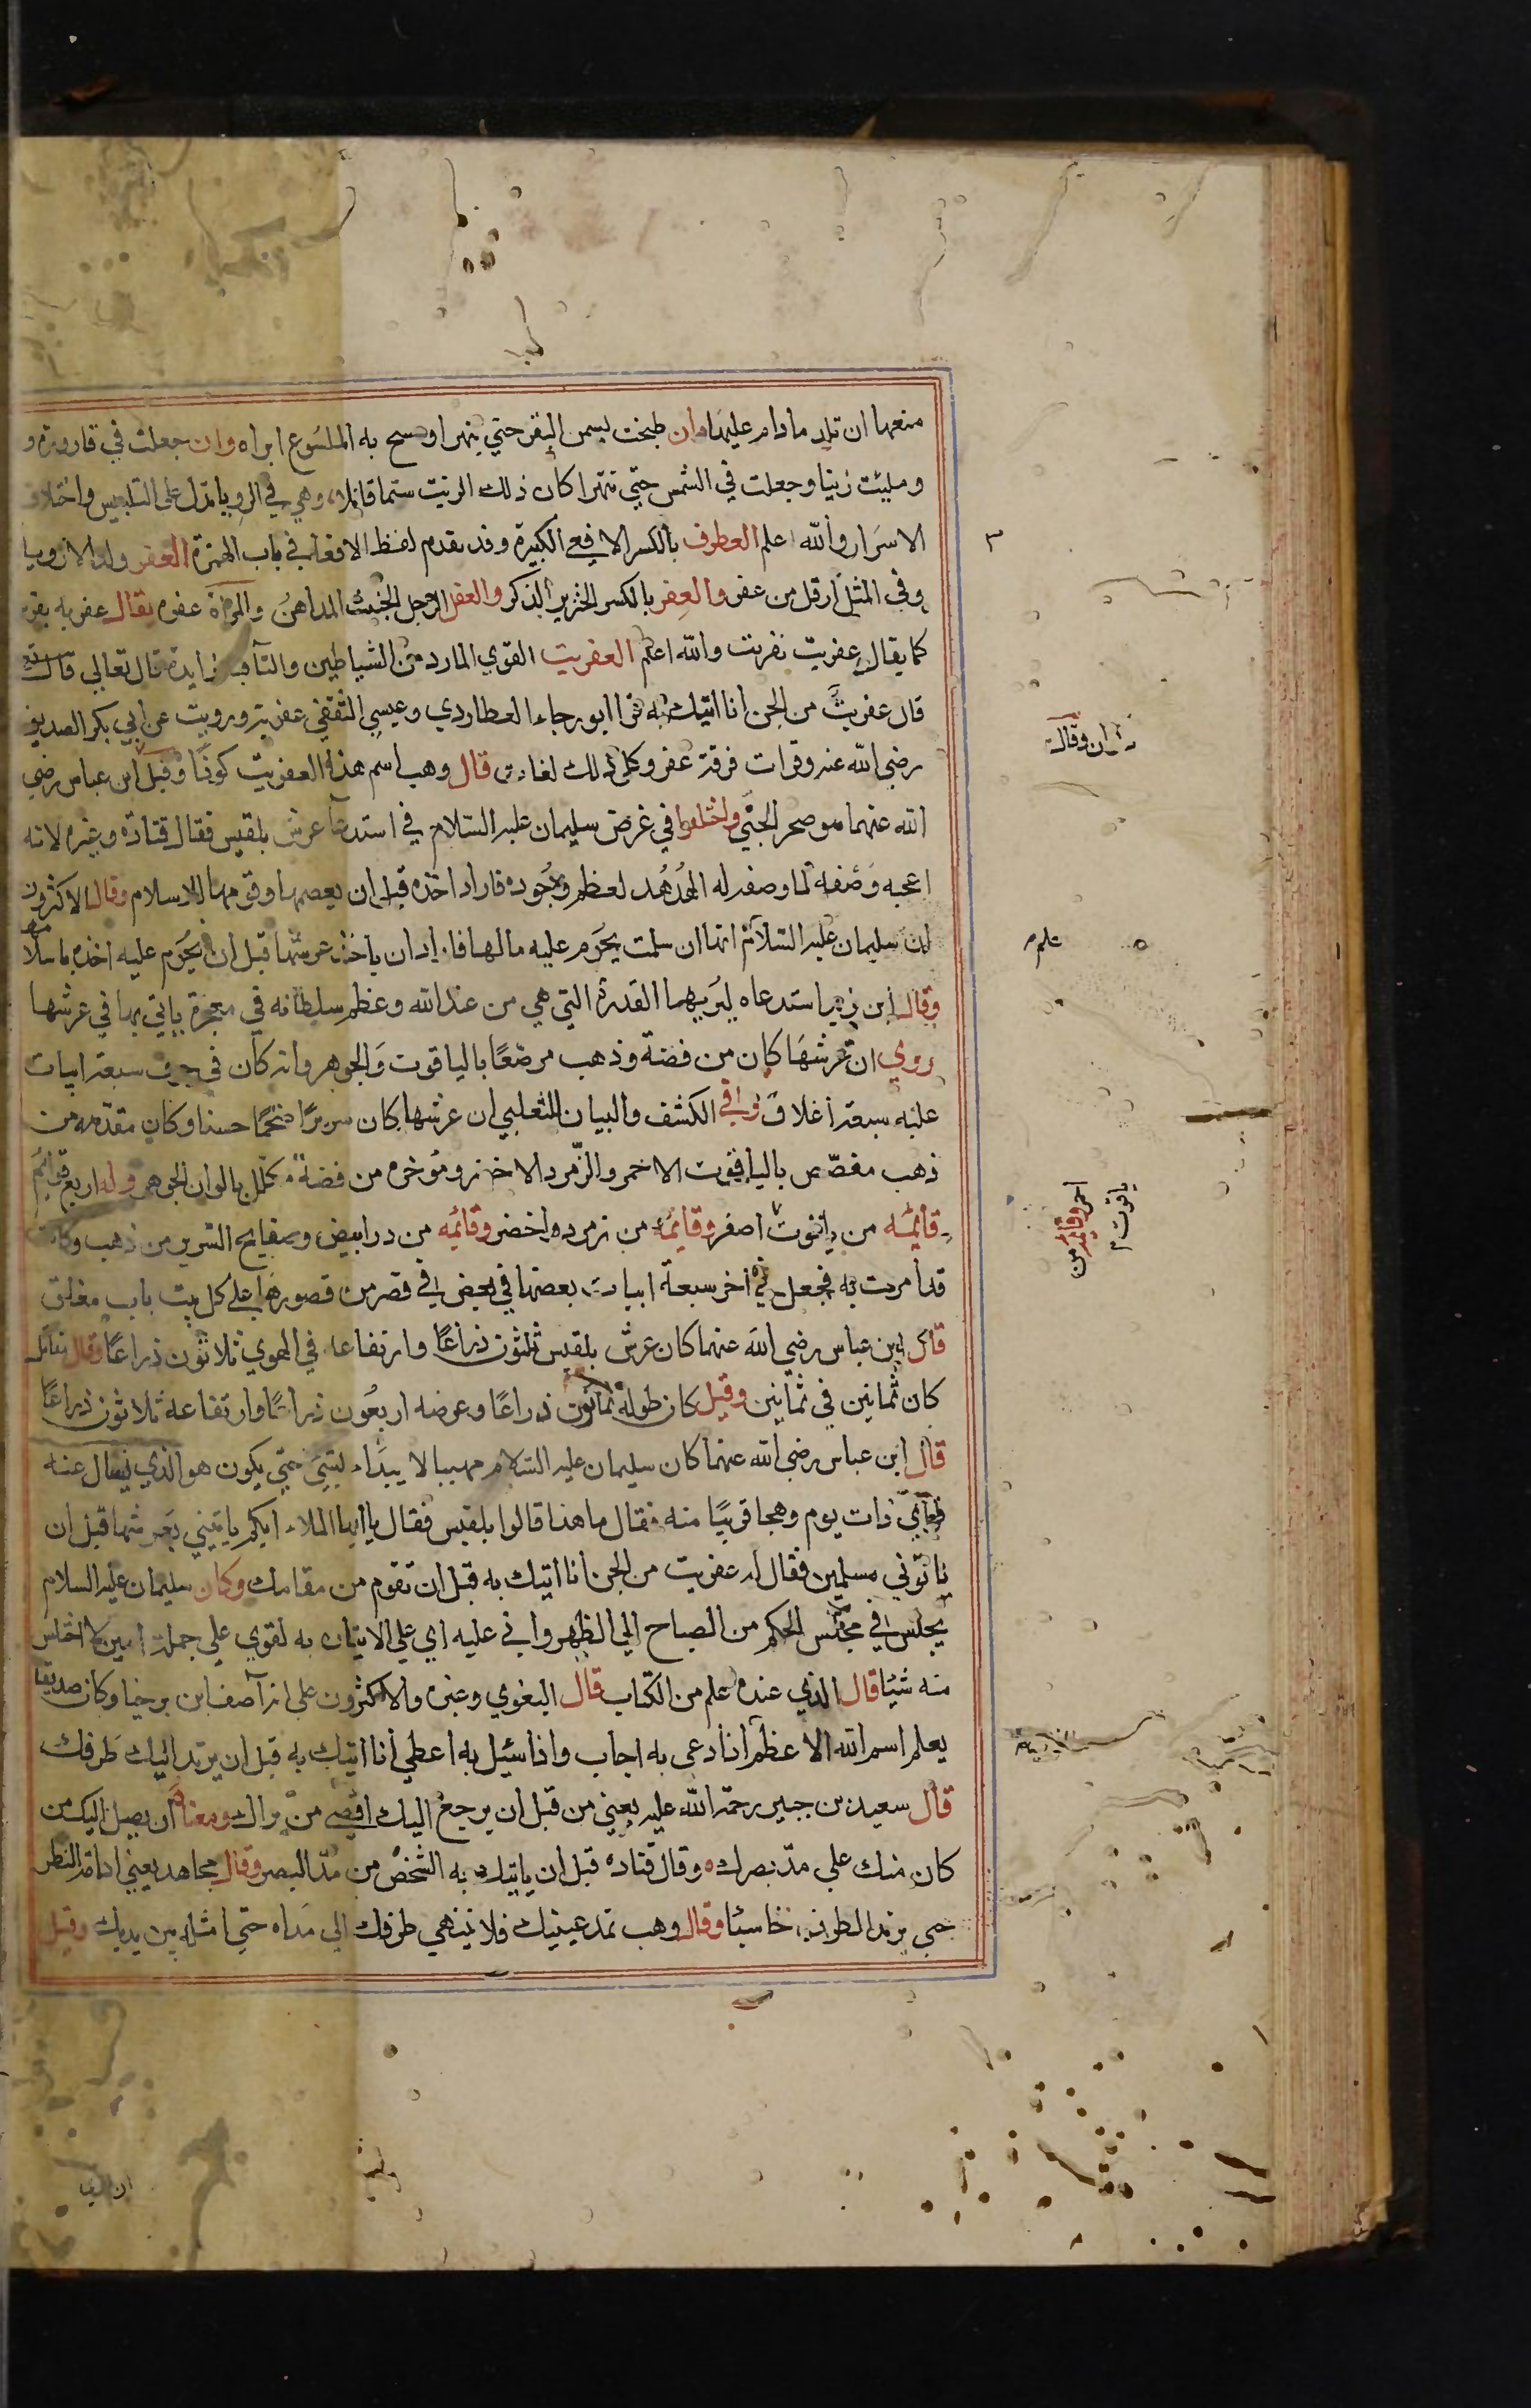 منعها ان تلد مادام عليها وان طبخت بسمن البقر حتي ينهرا ومسح به الملسوع ابراه وان جعلت في قارورة و
ومليت زيتا وجعلت في الشمس حتي تتهرا كان ذلك الزيت سما قاتلا وهي في الرويا تدل على التلبيس واختلاف
الاسرار والله اعلم العطوف بالكسر الافعي الكبيرة وقد تقدم لفظ الافعي في باب الهمزة العفر ولد الاروية
وفي المثل ارقل من عفر والعفر بالكسر الخنزير الذكر والعفر الرجل الخبيث المداهن والمراة عفره يقال عفريه نفريه
كما يقال عفريت نفريت والله اعلم العفريت القوي المارد من الشياطين والتآفيه زايدة قال تعالي قال
قال عفريت من الجن انا اتيك به قرا ابو رجاء العطاردي وعيسي الثقفي عفرية ورويت عن ابي بكر الصديق
رضي الله عنه وقرات فرقة عفر وكل ذلك لغات قال وهب اسم هذا العفريت كوذا وقيل ابن عباس رضي
الله عنهما هو صخر الجني واختلفوا في غرض سليمان عليه السلام في استدعآ عرش بلقيس فقال قتادة وغيره لانه
اعجبه وصفه لما وصفه له الهدهد لعظم وجوده فاراد اخذه قبل ان يعصمها وقومها الاسلام وقال الاكثرون
لان سليمان عليه السلام انها ان سلمت يحرم عليه مالها فاراد ان ياخذ عرشها قبل ان يحرم عليه اخذه باسلامها
وقال ابن زيد استدعاه ليريها القدرة التي هي من عند الله وعظم سلطانه في معجزة ياتي بها في عرشها
روي ان عرشها كان من فضة وذهب مرصعا بالياقوت والجوهر وانه كان في جوف سبعة ابيات
عليه سبعة اغلاق وفي الكشف والبيان للثعلبي ان عرشها كان سريرا ضخما حسنا وكان مقدمه من
ذهب مفصص بالياقوت الاحمر والزمرد الاخضر ومؤخره من فضة مكلل بالوان الجوهر وله اربع قوايم
قايمه من ياقوت اصفر وقايمه من زمرده اخضر وقايمه من در ابيض وصفايح السرير من ذهب وكانت
قد امرت به فجعل في اخر سبعة ابيات بعضها في بعض في قصر من قصورها على كل بيت باب مغلق
قال ابن عباس رضي الله عنهما كان عرش بلقيس ثلثون ذراعا وارتفاعه في الهوي ثلاثون ذراعا وقال مقاتل
كان ثمانين في ثمانين وقيل كان طوله ثمانون ذراعا وعرضه اربعون ذراعا وارتفاعه ثلاثون ذراعا
قال ابن عباس رضي الله عنهما كان سليمان عليه السلام مهيبا لا يبدا بشي حتي يكون هو الذي يسال عنه
فرآي ذات يوم وهجا قريبا منه فقال ما هذا قالوا بلقيس فقال يا ايها الملاء ايكم ياتيني بعرشها قبل ان
ياتوني مسلمين فقال له عفريت من الجن انا اتيك به قبل ان تقوم من مقامك وكان سليمان عليه السلام
يجلس في مجلس الحكم من الصباح الي الظهر واني عليه اي علي الاتيان به لقوي علي حمله امين لا اختلس
منه شيئا قال الذي عنده علم من الكتاب قال البغوي وغيره والاكثرون على انه آصف ابن برخيا وكان صديقا
يعلم اسم الله الاعظم اذا دعي به اجاب واذا سيل به اعطي انا اتيك به قبل ان يرتد اليك طرفك
قال سعيد بن جبير رحمة الله عليه يعني من قبل ان يرجع اليك اقصي من تراه ومعناه ان يصل اليك من
كان منك على مد بصرك وقال قتاده قبل ان ياتيك به الشخص من مد البصر وقال مجاهد يعني ادامة النظر
حتي يرتد الطرف خاسئا وقال وهب تمد عينيك فلا ينتهي طرفك الي مداه حتي امثله بين يديك وقيل
علم
احمر وقايمه من
ياقوت